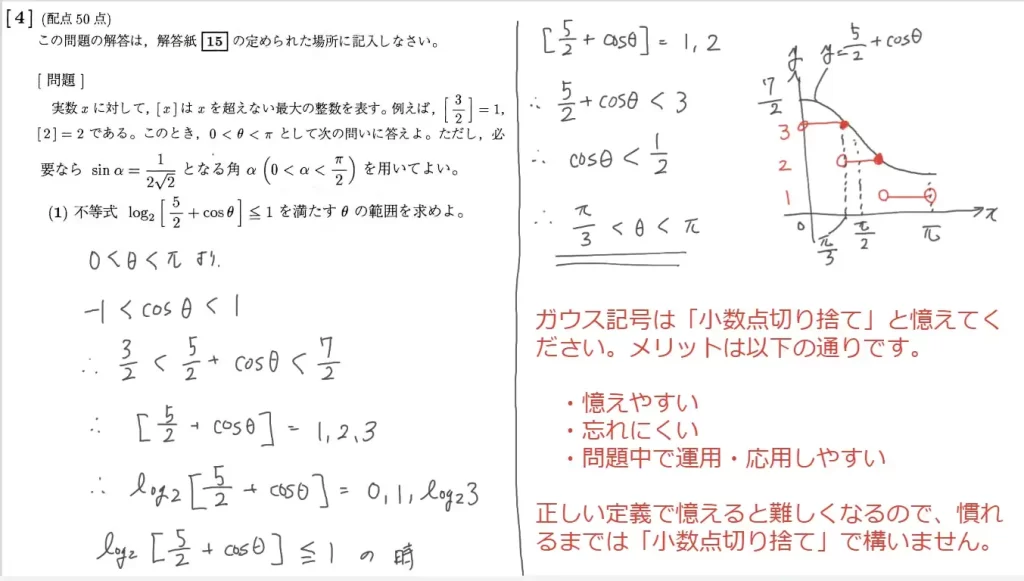 [4] (配点 50 点)
この問題の解答は，解答紙 15 の定められた場所に記入しなさい。
[ 問題 ]
実数 x に対して，[x] は x を超えない最大の整数を表す。例えば，[3/2] = 1，
[2] = 2 である。このとき，0 < θ < π として次の問いに答えよ。ただし，必
要なら sin α = 1/(2√2) となる角 α (0 < α < π/2) を用いてよい。
(1) 不等式 log₂[5/2 + cos θ] ≦ 1 を満たす θ の範囲を求めよ。
0 < θ < π より.
-1 < cosθ < 1
∴ 3/2 < 5/2 + cosθ < 7/2
∴ [5/2 + cosθ] = 1, 2, 3
∴ log₂[5/2 + cosθ] = 0, 1, log₂3
log₂[5/2 + cosθ] ≦ 1 の時
[5/2 + cosθ] = 1, 2
∴ 5/2 + cosθ < 3
∴ cosθ < 1/2
∴ π/3 < θ < π
y
y = 5/2 + cosθ
7/2
3
2
1
0
π/3
π/2
π
x
ガウス記号は「小数点切り捨て」と憶えてく
ださい。メリットは以下の通りです。
・憶えやすい
・忘れにくい
・問題中で運用・応用しやすい
正しい定義で憶えると難しくなるので、慣れ
るまでは「小数点切り捨て」で構いません。